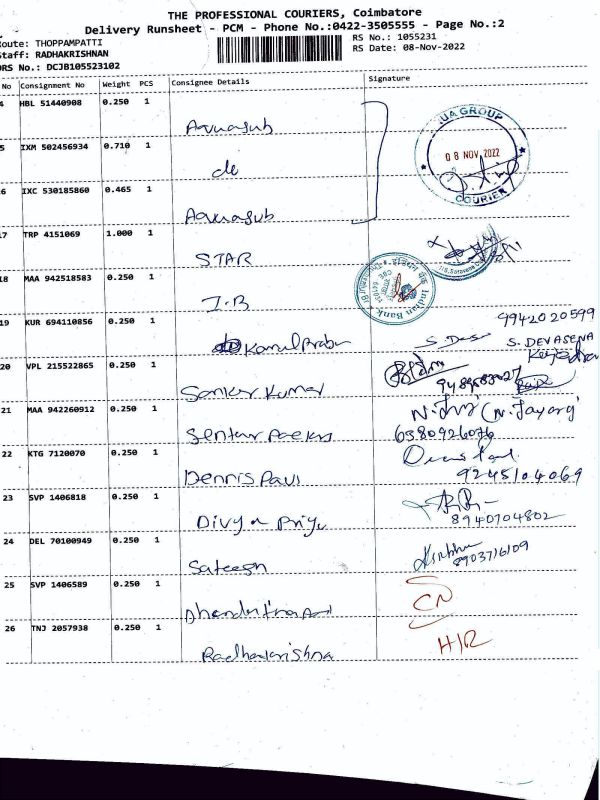 THE PROFESSIONAL COURIERS, Coimbatore
Delivery Runsheet - PCM - Phone No.:0422-3505555 - Page No.:2
oute: THOPPAMPATTI
RS No.: 1055231
taff: RADHAKRISHNAN
RS Date: 08-Nov-2022
RS No.: DCJB105523102
No Consignment No Weight PCS Consignee Details Signature
4 HBL 51440908 0.250 1
5 IXM 502456934 0.710 1
UA GROUP
08 NOV 2022
COURIER
do
6 IXC 530185860 0.465 1
7 TRP 4151069 1.000 1
STAR
18 MAA 942518583 0.250 1
Indian Bank
I.B
19 KUR 694110856 0.250 1
9942020599
Kamal Prabu
S. DEVASENA
20 VPL 215522865 0.250 1
Sankar Kumar
21 MAA 942260912 0.250 1
(N. Jayaraj)
6380926076
22 KTG 7120070 0.250 1
Dennis Paul
9245104069
23 SVP 1406818 0.250 1
Divya Priya
8940704802
24 DEL 70100949 0.250 1
Sateesh
8903716109
25 SVP 1406589 0.250 1
CN
26 TNJ 2057938 0.250 1
H/R
Radhakrishna